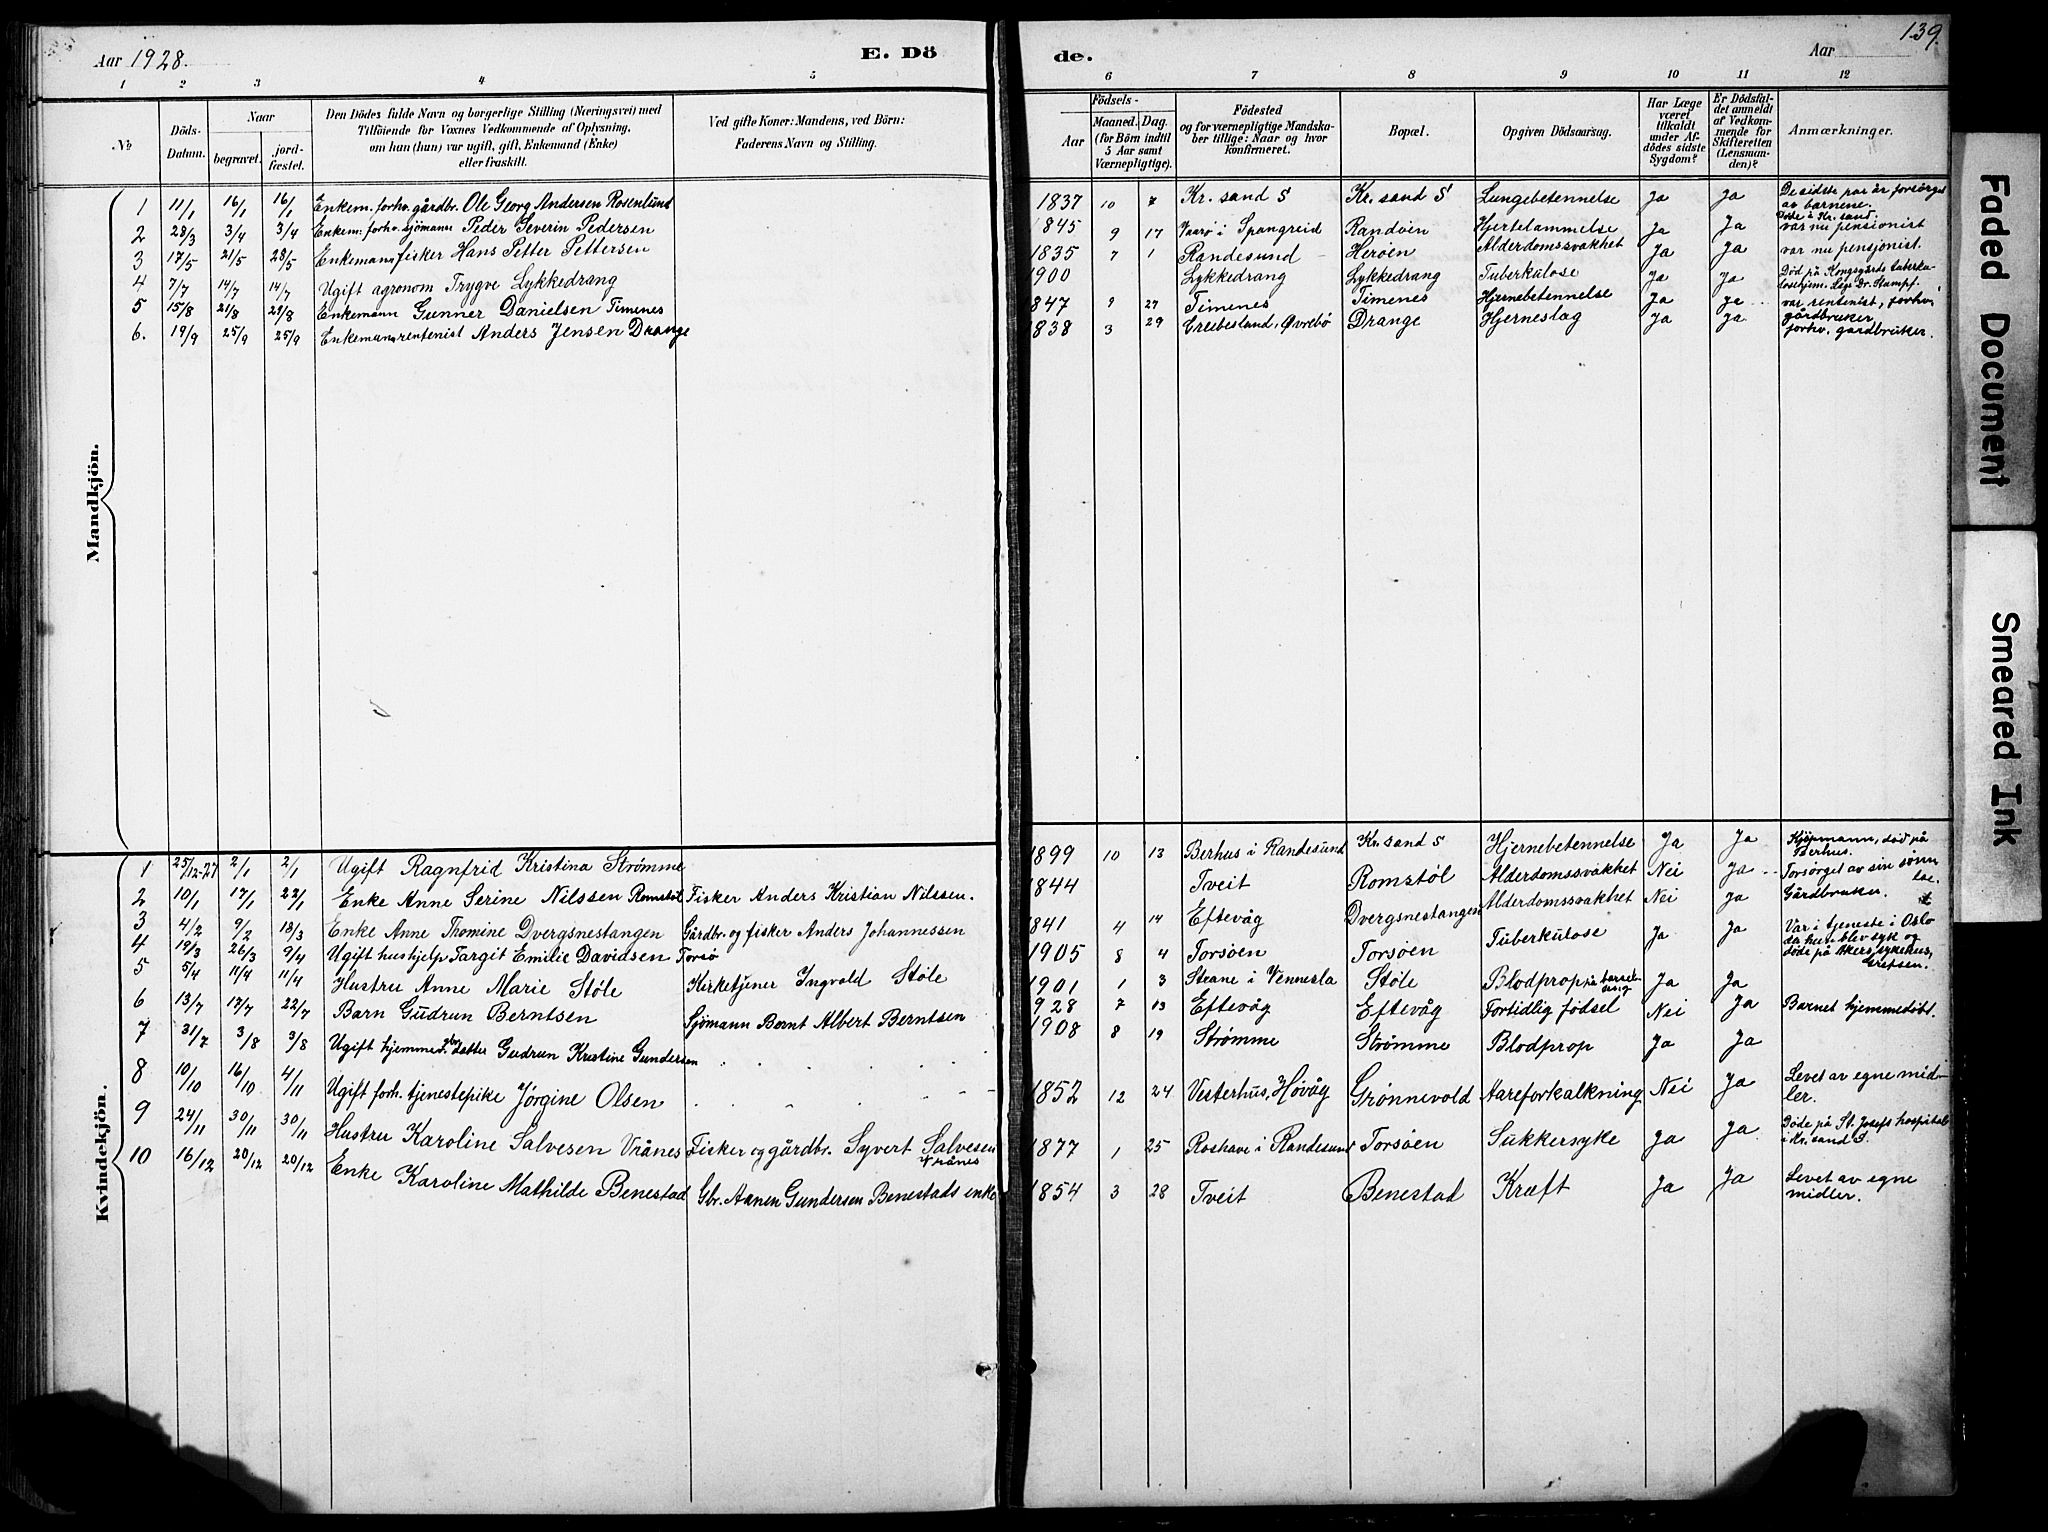 139.
Aar 1928.
E. Dö
de.
Aar
1 2 3 4 5 6 7 8 9 10 11 12
№
Döds-Datum.
Naar
begravet.
jordfæstet.
Den Dödes fulde Navn og borgerlige Stilling (Næringsvei) med
Tilföiende for Voxnes Vedkommende af Oplysning,
om han (hun) var ugift, gift, Enkemand (Enke)
eller fraskilt.
Ved gifte Koner: Mandens, ved Börn:
Faderens Navn og Stilling.
Födsels-
Aar
Maaned. Dag.
(for Börn indtil
5 Aar samt
Værnepligtige).
Födested
og for værnepligtige Mandska-
ber tillige: Naar og hvor
konfirmeret.
Bopæl.
Opgiven Dödsaarsag.
Har Læge
været
tilkaldt
under Af-
dödes sidste
Sygdom?
Er Dödsfal-
det anmeldt
af Vedkom-
mende for
Skifteretten
(Lensman-
den)?
Anmærkninger.
Mandkjön.
1 11/1 16/1 16/1 Enkem. forhv. gårdbr. Ole Georg Andersen Rosenlund 1837 10 7 Kr. sand S Kr. sand S Lungebetennelse Ja Ja De sidste par år forsørget av barnene. Døde i Kr. sand.
2 28/3 3/4 3/4 Enkem. forhv. sjömann Peder Severin Pedersen 1845 9 17 Vaarø i Spangreid Randøen Hjertelammelse Ja Ja var nu pensionist
3 17/5 21/5 28/5 Enkemann fisker Hans Petter Pettersen 1835 7 1 Randesund Herøen Alderdomssvakhet Ja Ja var nu pensjonist.
4 7/7 14/7 14/7 Ugift agronom Trygve Lykkedrang 1900 Lykkedrang Lykkedrang Tuberkulose Ja Ja Död på Kongsgårds tuberkulosehjem. Lege Dr. Stampf.
5 15/8 21/8 29/8 Enkemann Gunner Danielsen Timenes 1847 9 27 Timenes Timenes Hjernebetennelse Ja Ja var rentenist, forhv. gårdbruker
6. 19/9 25/9 25/9 Enkemann rentenist Anders Jensen Drange 1838 3 29 Øvrebø Drange Hjerneslag Ja Ja forhv. gårdbruker.
Kvindekjön.
1 25/12-27 2/1 2/1 Ugift Ragnfrid Kristina Strømme 1899 10 13 Berhus i Randesund Kr. sand S Hjernebetennelse Ja Ja Kjöpmann, död på Berhus.
2 10/1 17/1 22/1 Enke Anne Serine Nilssen Romstöl Fisker Anders Kristian Nilssen. 1844 Tveit Romstøl Alderdomssvakhet Nei Ja Forsørget av sin sønn
3 4/2 9/2 18/3 Enke Anne Thomine Dvergsnestangen Gårdbr. og fisker Anders Johannessen 1841 4 14 Eftevåg Dvergsnestangen Alderdomssvakhet Nei Ja Gårdbruker.
4 19/3 26/3 9/4 Ugift hushjelp Targit Emilie Davidsen Torsö 1905 8 4 Torsøen Torsøen Tuberkulose Ja Ja Var i tjeneste i Oslo da hun blev syk og döde på Akers sykehus, Grefsen.
5 5/4 11/4 11/4 Hustru Anne Marie Støle Kirketjener Ingvald Støle 1901 1 3 Steane i Vennesla Støle Blodprop på barselseng Ja Ja
6 13/7 17/7 22/7 Barn Gudrun Berntsen Sjömann Bernt Albert Berntsen 928 7 13 Eftevåg Eftevåg Fortidlig fødsel Nei Ja Barnet hjemmedöbt.
7 31/7 3/8 3/8 Ugift hjemmev. datter Gudrun Kristine Gundersen 1908 8 19 Strømme Strømme Blodprop Ja Ja
8 10/10 16/10 4/11 Ugift forh. tjenestepike Jörgine Olsen 1852 12 24 Vesterhus, Høvåg Grønnevold Aareforkalkning Nei Ja Levet av egne midler.
9 24/11 30/11 30/11 Hustru Karoline Salvesen Vrånes Fisker og gårdbr. Syvert Salvesen Vrånes 1877 1 25 Roshave i Randesund Torsøen Sukkersyke Ja Ja Döde på St. Josefs hospital i Kr. sand S.
10 16/12 20/12 20/12 Enke Karoline Mathilde Benestad Gbr. Aanen Gundersen Benestads enke 1854 3 28 Tveit Benestad Kræft Ja Ja Levet av egne midler.
Faded Document
Smeared Ink